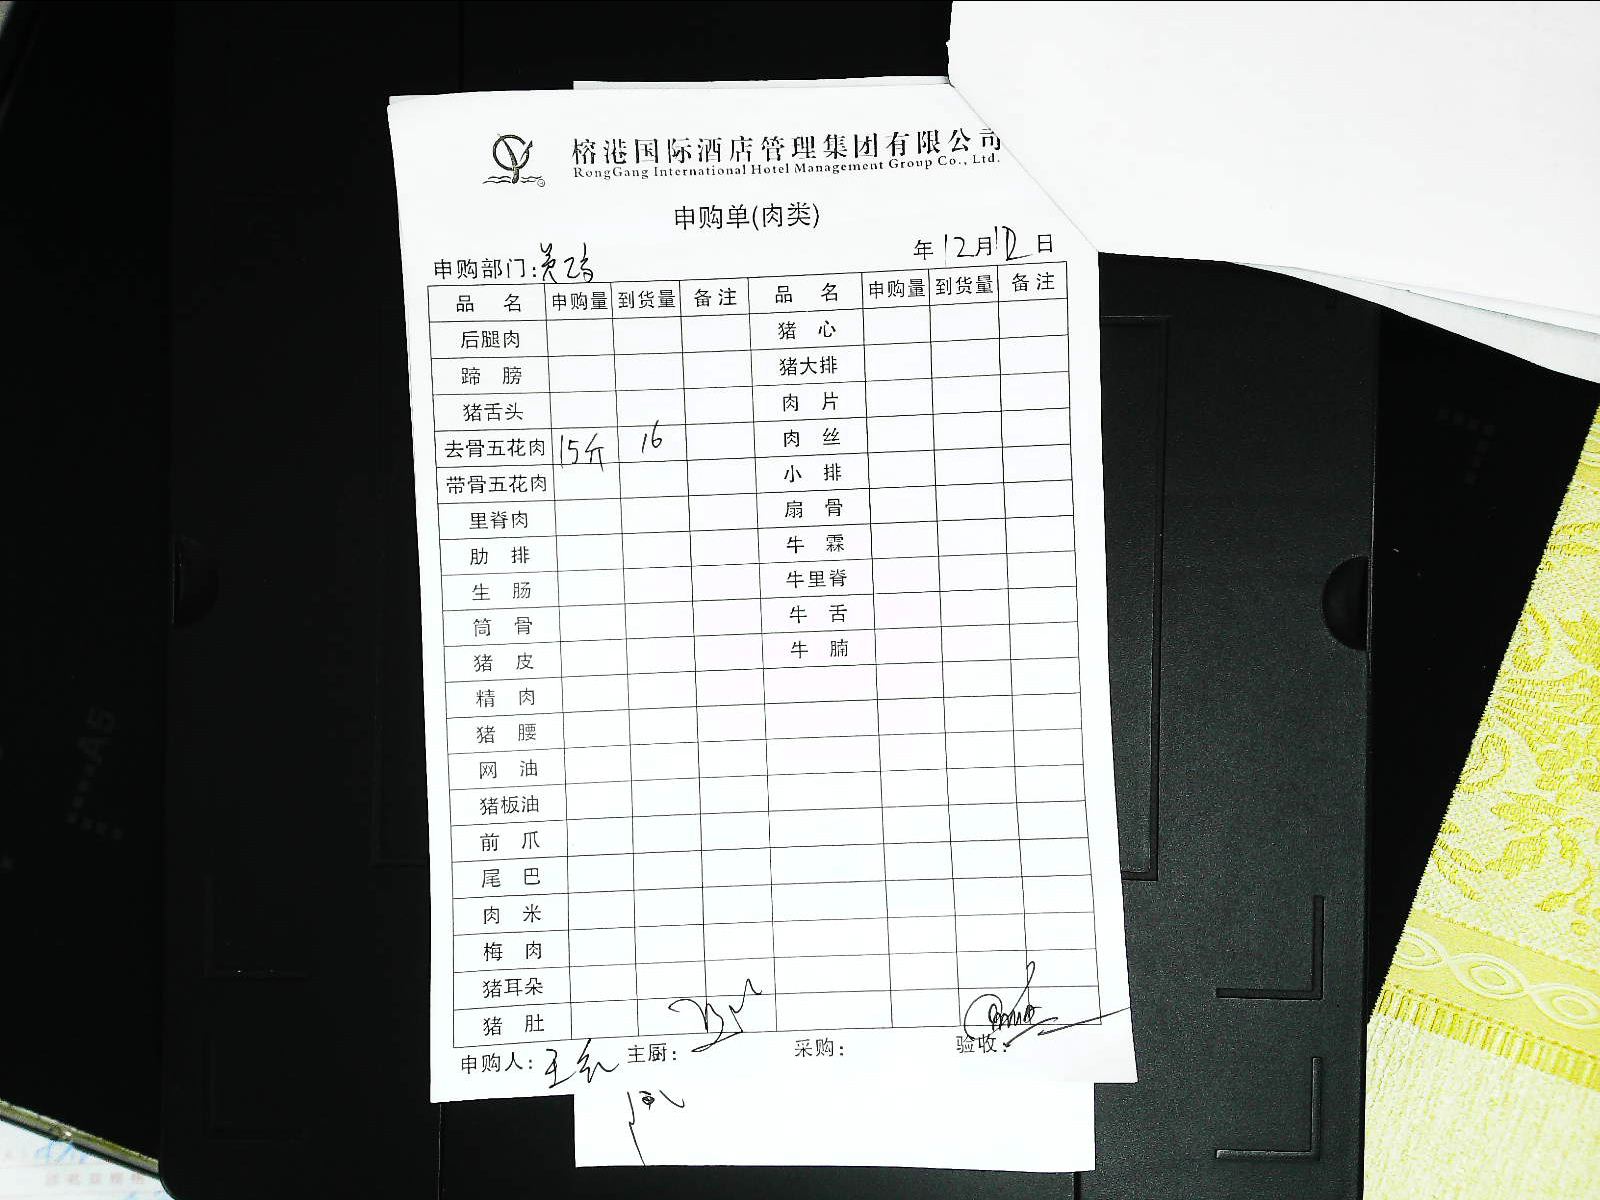 榕港国际酒店管理集团有限公司
RongGang International Hotel Management Group Co., Ltd.
申购单(肉类)
申购部门: 年12月12日
品名 申购量 到货量 备注 品名 申购量 到货量 备注
后腿肉 猪心
蹄膀 猪大排
猪舌头 肉片
去骨五花肉 15斤 16 肉丝
带骨五花肉 小排
里脊肉 扇骨
肋排 牛霖
生肠 牛里脊
筒骨 牛舌
猪皮 牛腩
精肉
猪腰
网油
猪板油
前爪
尾巴
肉米
梅肉
猪耳朵
猪肚
申购人: 主厨: 采购: 验收: